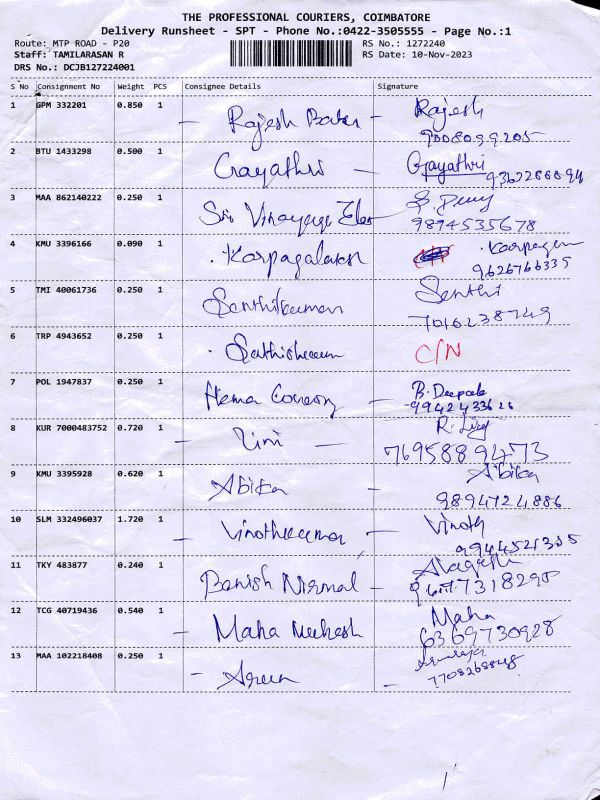 THE PROFESSIONAL COURIERS, COIMBATORE
Delivery Runsheet - SPT - Phone No.:0422-3505555 - Page No.:1
Route: MTP ROAD - P20 RS No.: 1272240
Staff: TAMILARASAN R RS Date: 10-Nov-2023
DRS No.: DCJB127224001
S No Consignment No Weight PCS Consignee Details Signature
1 GPM 332201 0.850 1 - Rajesh Rajesh
9008099205
2 BTU 1433298 0.500 1 Gayathri - Gayathri
3 MAA 862140222 0.250 1 Sri Vinayaga
9894535678
4 KMU 3396166 0.090 1 . Karpagalaksh . Karpagam
9626766335
5 TMI 40061736 0.250 1 Senthilkumar Senthi
7010238749
6 TRP 4943652 0.250 1 . Sathishkumar C/N
7 POL 1947837 0.250 1 Hema - B. Deepak
8 KUR 7000483752 0.720 1 - Lini - R.
7695889473
9 KMU 3395928 0.620 1 Abika - Abika
9894724886
10 SLM 332496037 1.720 1 - Vinothkumar - Vinoth
11 TKY 483877 0.240 1 Banish Nirmal -
12 TCG 40719436 0.540 1 - Maha Mukesh - Maha
6369730928
13 MAA 102218408 0.250 1 -